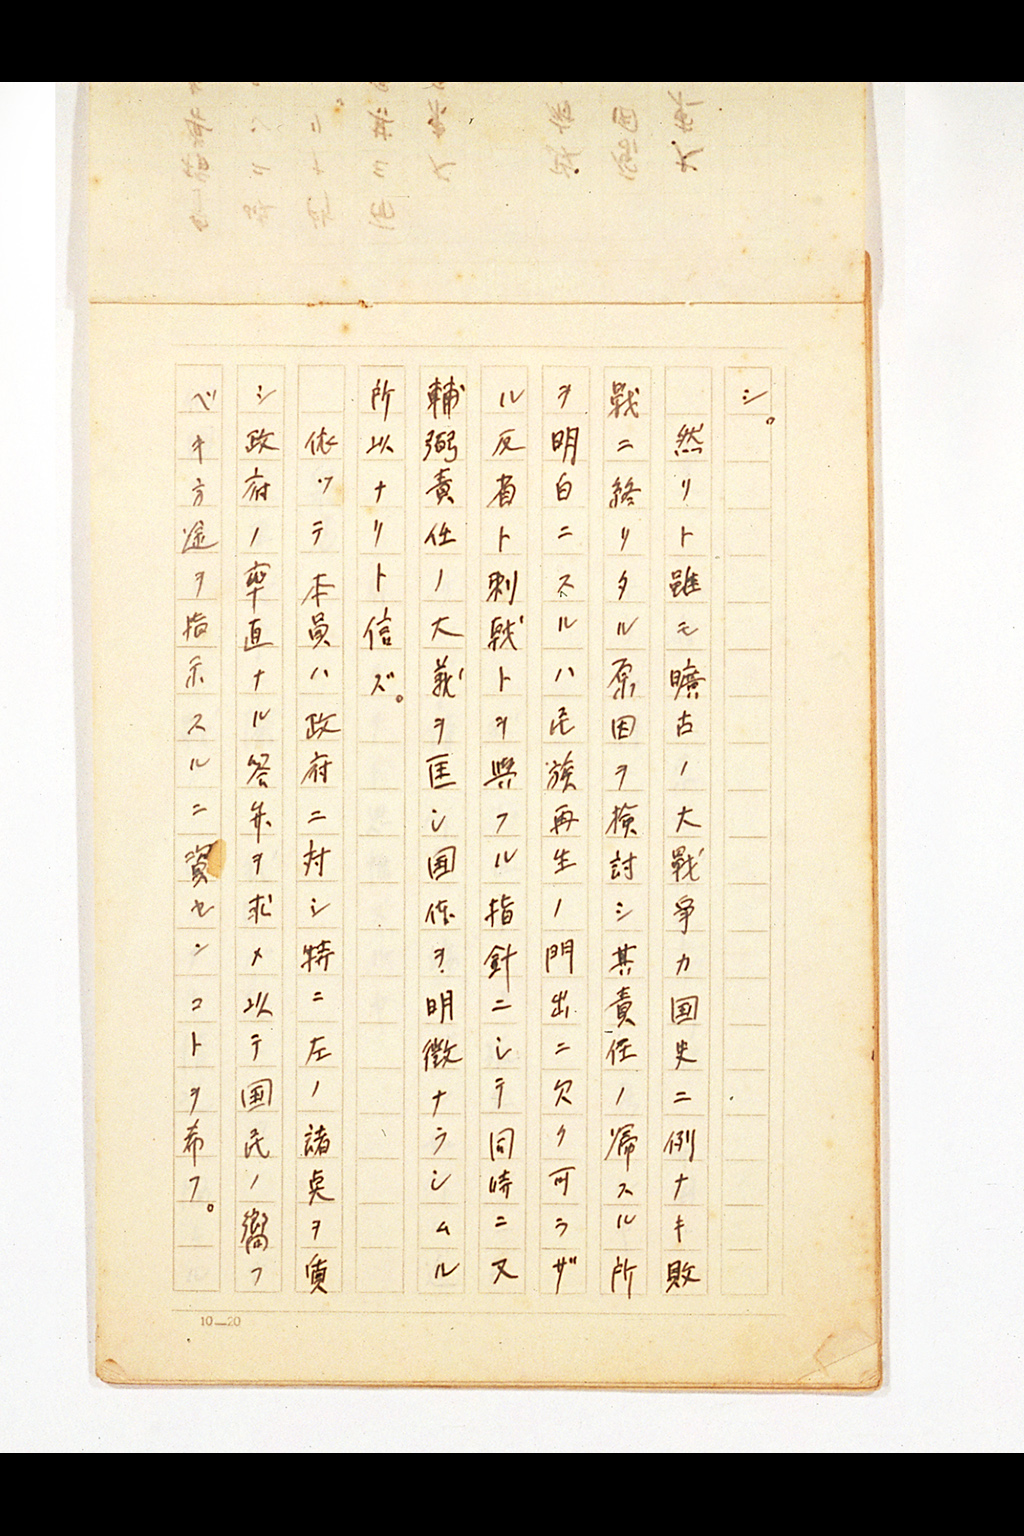 シ。
然リト雖モ曠古ノ大戰争カ国史ニ例ナキ敗
戰ニ終リタル原因ヲ検討シ其責任ノ帰スル所
ヲ明白ニスルハ民族再生ノ門出ニ欠ク可ラザ
ル反省ト刺戟トヲ與フル指針ニシテ同時ニ又
輔弼責任ノ大義ヲ匡シ国体ヲ明徴ナラシムル
所以ナリト信ズ。
依ッテ本員ハ政府ニ対シ特ニ左ノ諸点ヲ質
シ政府ノ率直ナル答弁ヲ求メ以テ国民ノ嚮フ
ベキ方途ヲ指示スルニ資センコトヲ希フ。
10—20